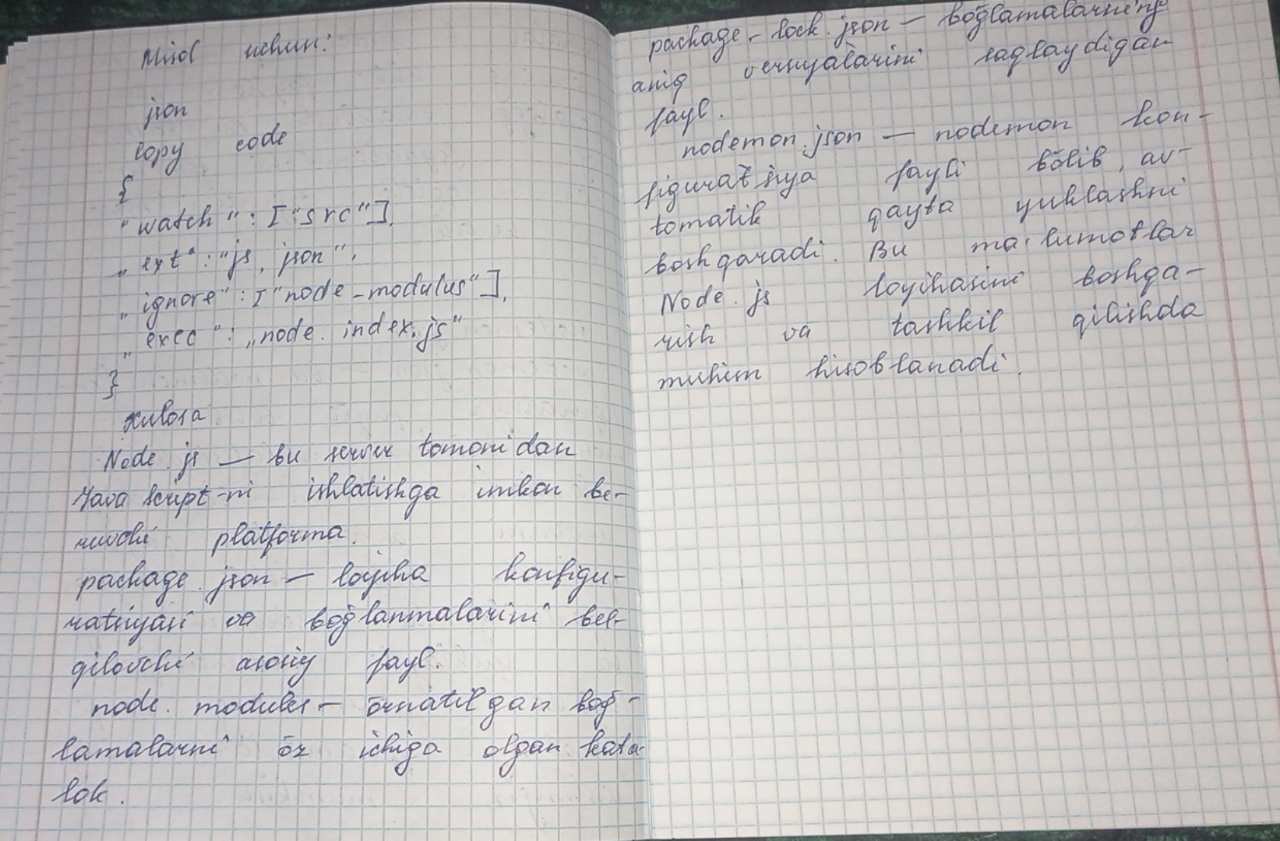 Misol uchun:
json
Copy code
{
"watch": ["src"],
"ext": "js, json",
"ignore": ["node-modulus"],
"exec": "node. index.js"
}
Xulosa
Node js — bu server tomonidan
Java script-ni ishlatishga imkon be-
ruvchi platforma.
package json — loyiha konfigu-
ratsiyasi va bog̃lanmalarini bel-
gilovchi asosiy fayl.
node. modules — õrnatilgan bog̃-
lamalarni õz ichiga olgan kata-
lok.
package-lock.json — bog̃lamalarning
aniq versiyalarini saqlaydigan
fayl.
nodemon.json — nodemon kon-
figuratsiya fayli bõlib, av-
tomatik qayta yuklashni
boshqaradi. Bu ma'lumotlar
Node.js loyihasini boshqa-
rish va tashkil qilishda
muhim hisoblanadi.